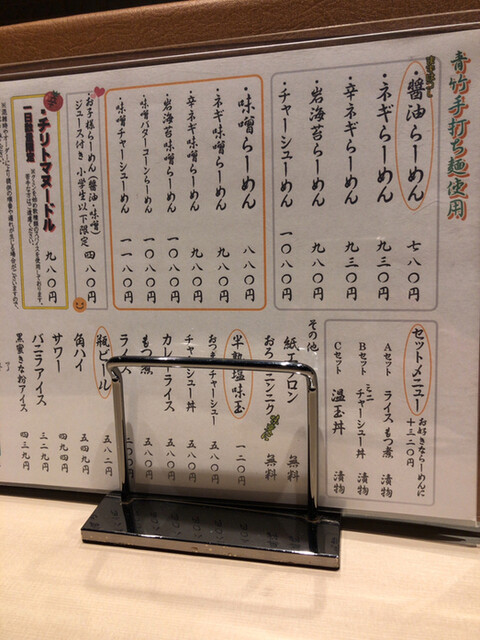 青竹手打ち麺使用
・醤油らーめん 七八〇円
・ネギらーめん 九三〇円
・辛ネギらーめん 九三〇円
・岩海苔らーめん 九八〇円
・チャーシューめん 一〇八〇円
・味噌らーめん 八八〇円
・ネギ味噌らーめん 九八〇円
・辛ネギ味噌らーめん 九八〇円
・岩海苔味噌らーめん 一〇八〇円
・味噌バターコーンらーめん 一〇八〇円
・味噌チャーシューめん 一一八〇円
・お子様らーめん(醤油・味噌) 四八〇円
ジュース付き 小学生以下限定
・チリトマヌードル 九八〇円
一日数量限定
セットメニュー
お好きならーめんに
+三二〇円
Aセット ライス もつ煮 漬物
Bセット ミニチャーシュー丼 漬物
Cセット 温玉丼 漬物
その他
紙エプロン 無料
おろしニンニク 無料
半熟塩味玉 一二〇円
おつまみチャーシュー 五八〇円
チャーシュー丼
カレーライス 五八〇円
もつ煮 五八〇円
ライス 二〇〇円
瓶ビール 五八二円
角ハイ 五四九円
サワー 四九四円
バニラアイス 三二九円
黒蜜きな粉アイス 四三九円